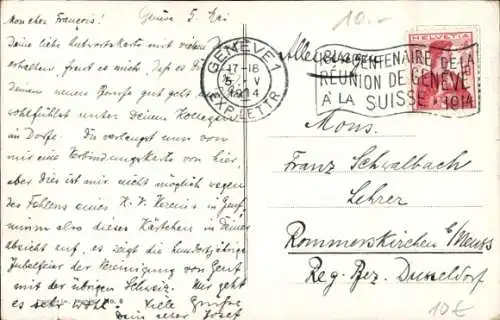 Mon cher François! Genève 5. Mai
Dein liebe Antwortskarte mit vielen Dank
erhalten, freut es mich, daß es Dir in
Deinem neuen Berufe gut geht u. Du Dich
wohlfühlst unter deinen Kollegen
im Dorfe. Du verlangst nun von
mir eine Verbindungskarte von hier,
aber dies ist mir nicht möglich wegen
des Fehlens eines K. V. Vereins in Genf,
nimm also dieses Kärtchen in
absicht auf, es zeigt die hundertjährige
Jubelfeier der Vereinigung von Genf
mit der übrigen Schweiz. Mir geht
es sehr wohl! Viele Grüße
Dein alter Josef
No. 8
10.-
GENÈVE 1
17-18
5. V
1914
EXP. LETTR.
CENTENAIRE DE LA
RÉUNION DE GENÈVE
À LA SUISSE 1914
HELVETIA
Allemagne
Mons.
Franz Schwalbach
Lehrer
Rommerskirchen b/Neuss
Reg. Bez. Dusseldorf
10€